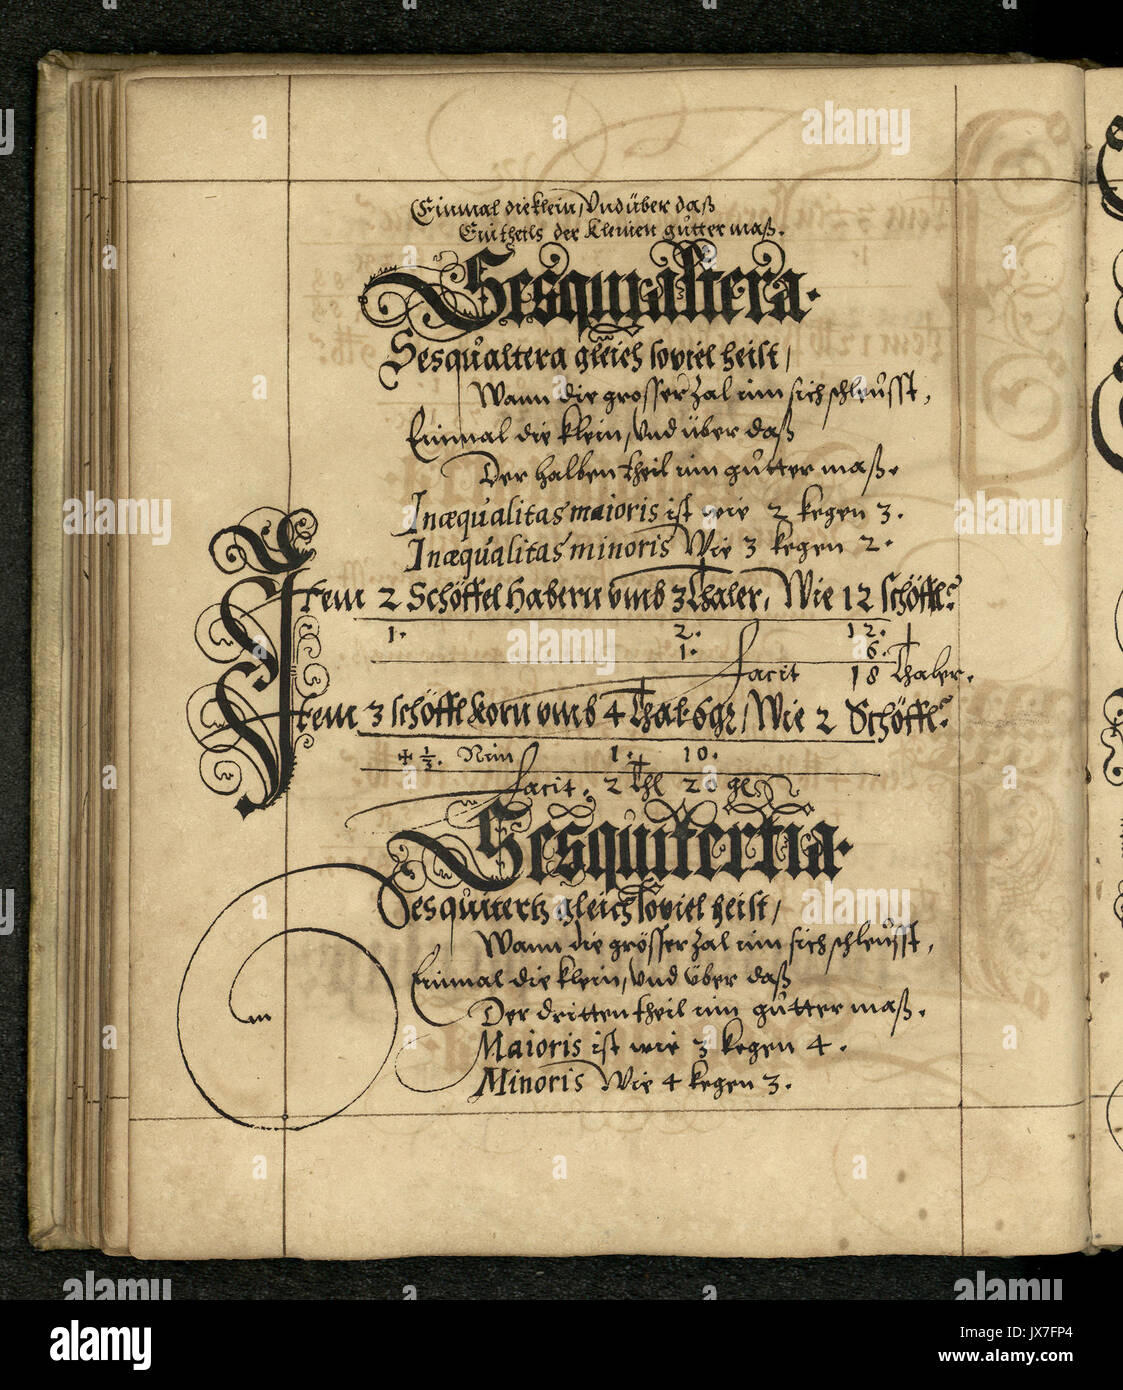 Einmal die klein, und über daß
Ein theils der kleinen gůtter maß.
Sesquialtera.
Sesqůaltera gleich soviel heist,
Wann die grosser Zal inn sich schleůsst,
Einmal die klein, und über daß
Der halben theil inn gůtter maß.
Inæqůalitas maioris ist wie 2 kegen 3.
Inæqůalitas minoris Wie 3 kegen 2.
Item 2 Schöffel Habern umb 3 Thaler, Wie 12 schöffl?
1. 2. 12.
1. 6.
facit 18 Thaler.
Item 3 schöffl Korn umb 4 Thal 6 gr, Wie 2 Schöffl?
+ 1/3. Nim 1. 10.
facit. 2 Thl 20 gl
Sesquitertia.
Sesqůitertz gleich soviel heist,
Wann die grösser Zal inn sich schleůsst,
Einmal die klein, und über daß
Der dritten theil inn gůtter maß.
Maioris ist wie 3 kegen 4.
Minoris Wie 4 kegen 3.
alamy
Image ID: JX7FP4
www.alamy.com